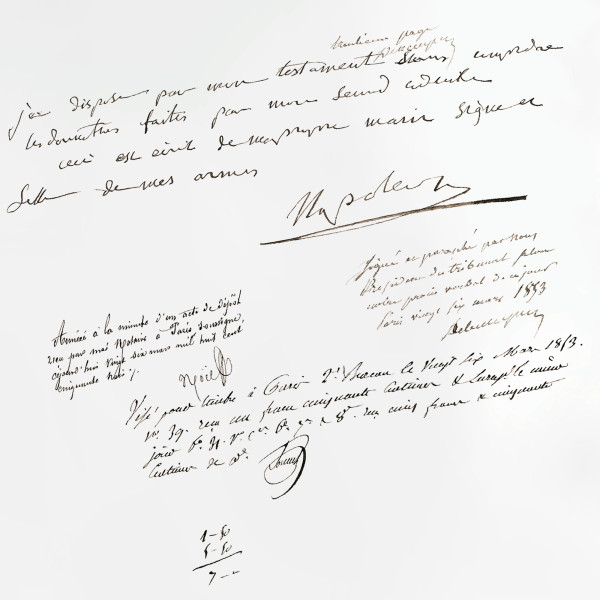 treutieme page
Debelleyme
j'ai disposé par mon testament sans comprendre
les donations faites par mon second codicile
ceci est écrit de ma propre main signé et
Sellé de mes armes
Napoleon
Signé et paraphé par nous
Président du tribunal
notre procès verbal de ce jour
Paris vingt six mars 1853
Debelleyme
Annéxé à la minute d'un acte de dépôt
reçu par moi Notaire à Paris soussigné,
cejourd'hui vingt six mars mil huit cent
cinquante trois %.
Noël
Visé pour timbre à Paris 2e Bureau le vingt six Mars 1853.
No. 39. reçu un franc cinquante centimes & Enregistré le même
jour fo. 71. Vo. reçu cinq francs & cinquante
Centimes de
1-50
5-50
7--